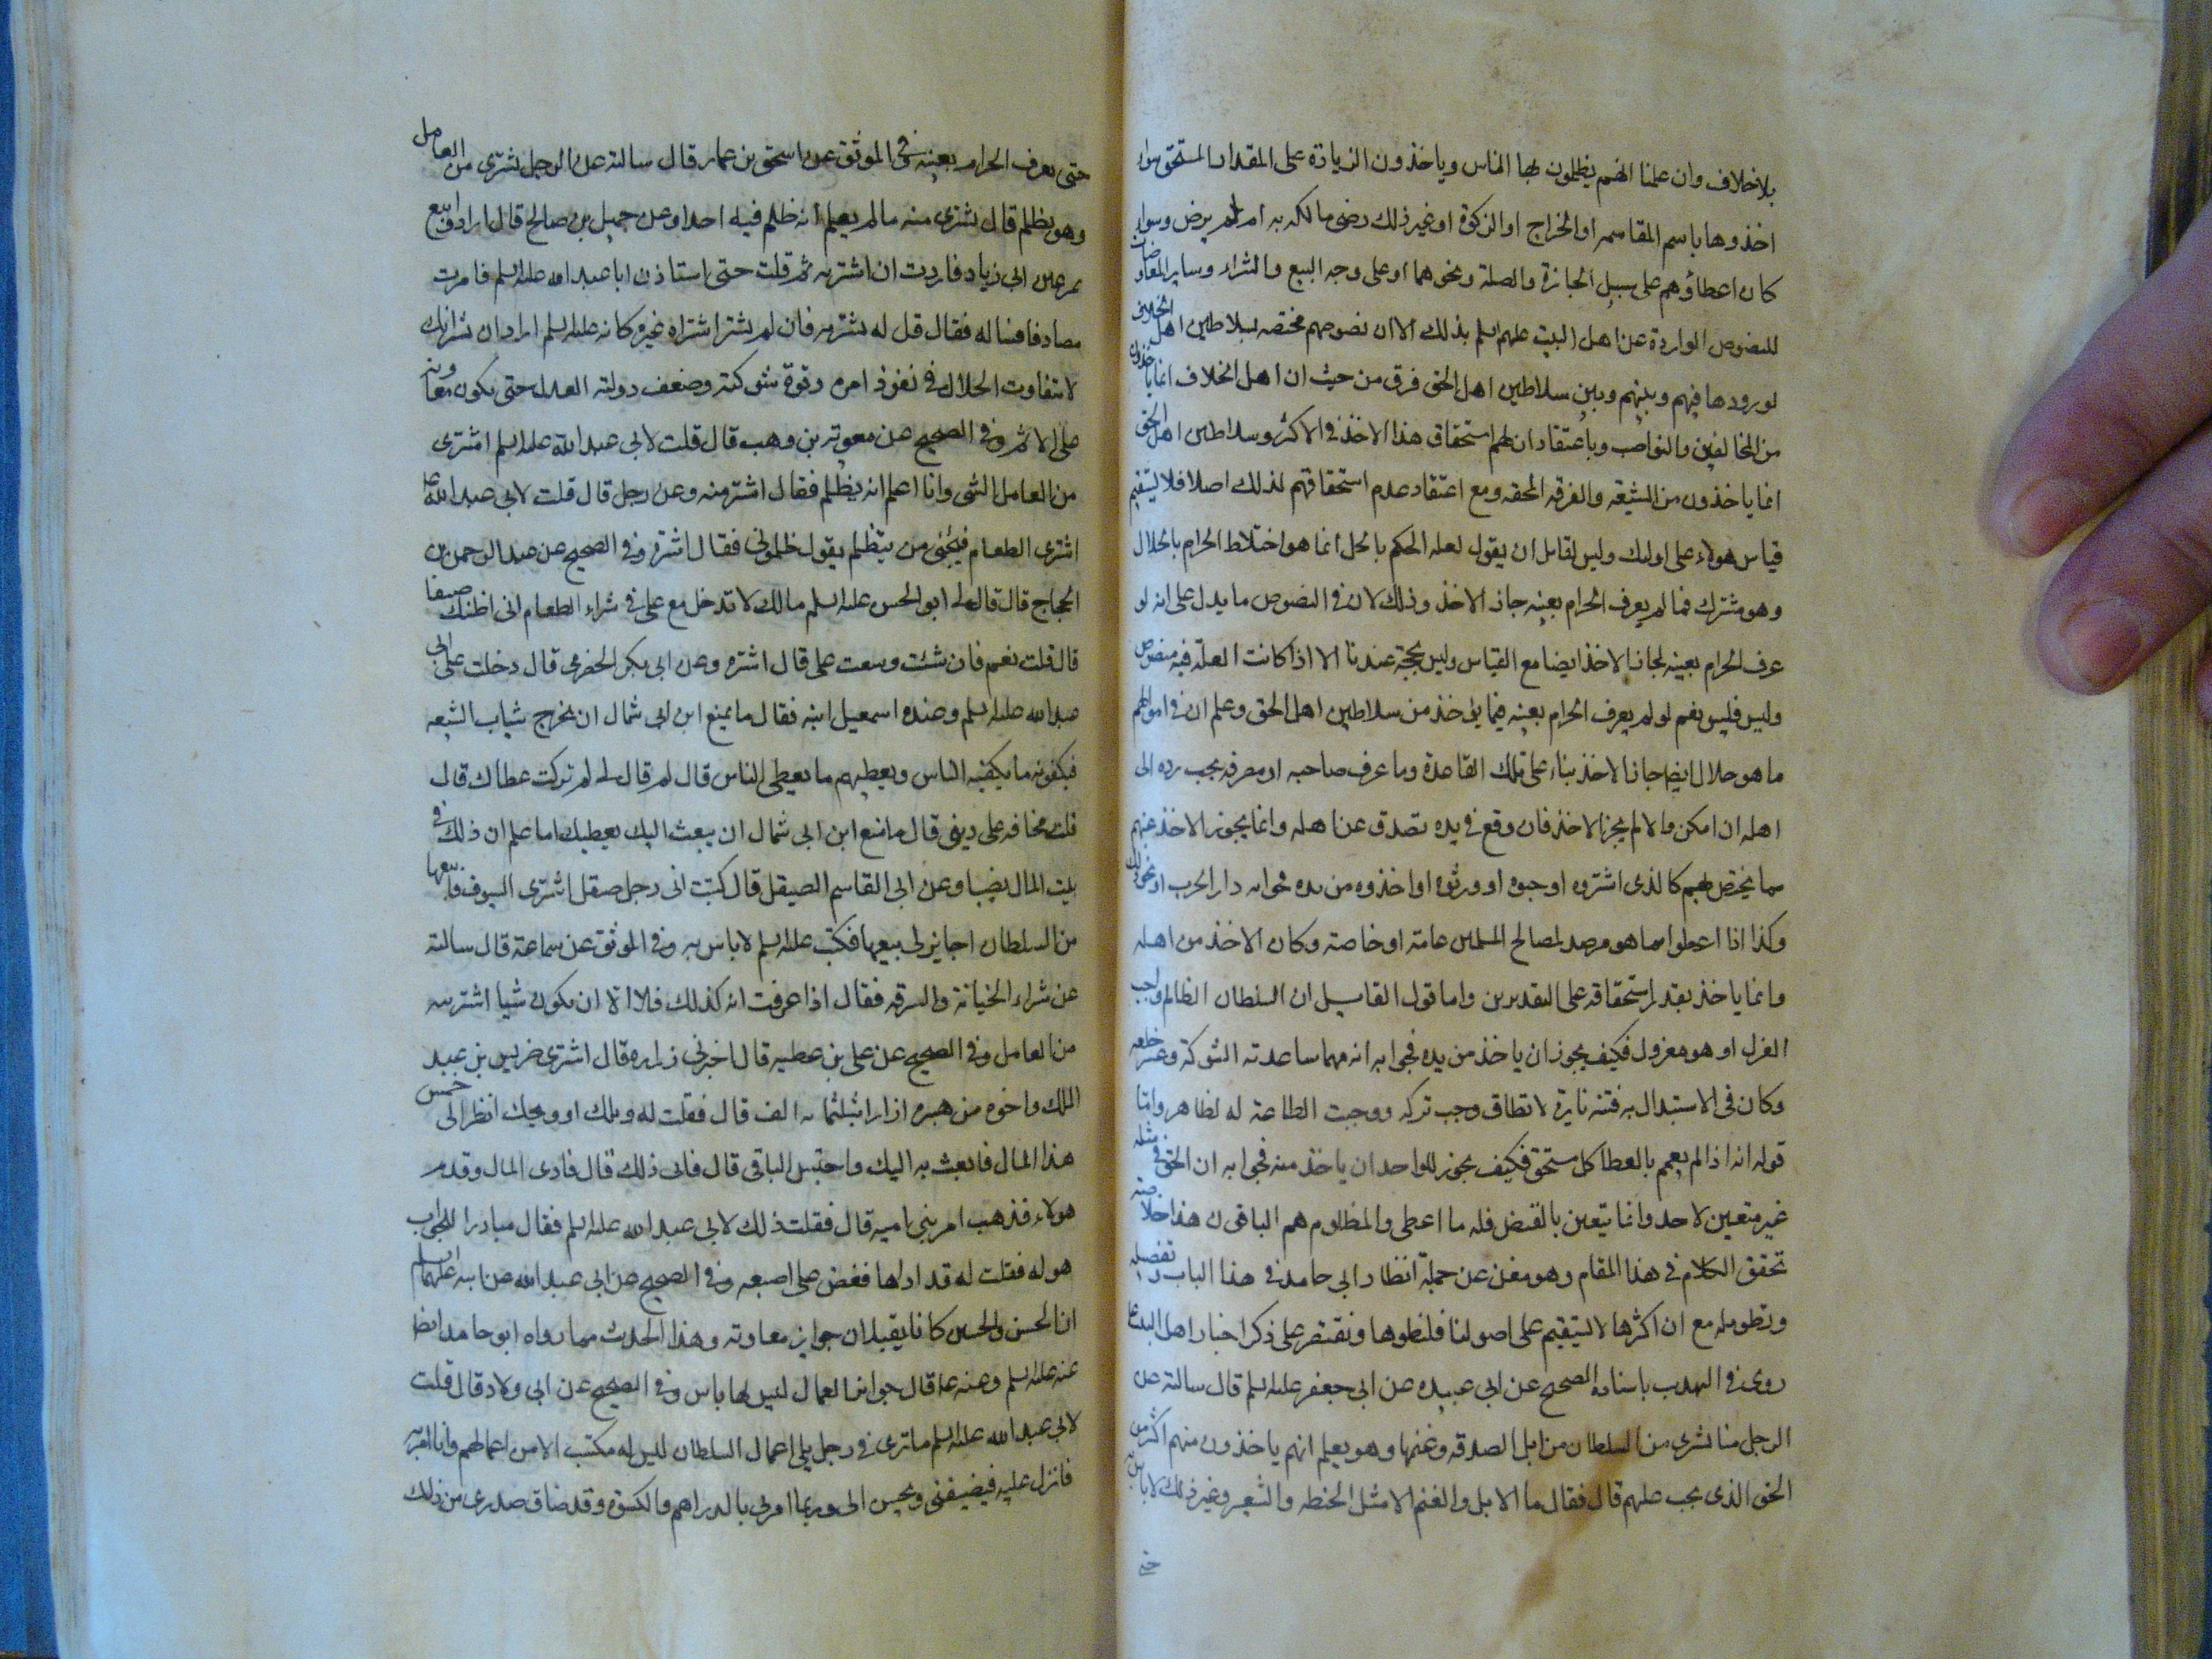 بلاخلاف وان علمنا انهم يظلمون بها الناس وياخذون الزيادة على المقدار المستحق سواء
اخذوها باسم المقاسمه او الخراج او الزكوة او غير ذلك رضى مالكه به ام لم يرض وسواء
كان اعطاؤهم على سبيل الجايزة والصلة ونحوهما او على وجه البيع والشراء وساير المعاوضات
للنصوص الواردة عن اهل البيت عليهم السلم بذلك الا ان نصوصهم مختصه بسلاطين اهل الخلاف
لورودها فيهم وبينهم وبين سلاطين اهل الحق فرق من حيث ان اهل الخلاف انما ياخذون
من المخالفين والنواصب وباعتقاد ان لهم استحقاق هذا الاخذ في الاكثر وسلاطين اهل الحق
انما ياخذون من الشيعة والفرقه المحقه ومع اعتقاد عدم استحقاقهم لذلك اصلا فلا يستقيم
قياس هولاء على اولئك وليس لقايل ان يقول لعله الحكم بالحل انما هو اختلاط الحرام بالحلال
وهو مشترك فما لم يعرف الحرام بعينه جاز الاخذ وذلك لان في النصوص ما يدل على انه لو
عرف الحرام بعينه لجاز الاخذ ايضا مع القياس وليس بحجة عندنا الا اذا كانت العلة فيه منصوص
وليس فليس نعم لو لم يعرف الحرام بعينه فيما يؤخذ من سلاطين اهل الحق وعلم ان في اموالهم
ما هو حلال ايضا جاز الاخذ بناء على تلك القاعدة وما عرف صاحبه او مصرفه يجب رده الى
اهله ان امكن والا لم يجز الاخذ فان وقع في يده تصدق عن اهله وانما يجوز الاخذ عنهم
مما يختص بهم كالذى اشتروه او جبوه او ورثوه او اخذوه من دار الحرب او نحو ذلك
وكذا اذا اعطوا مما هو مرصد لمصالح المسلمين عامة او خاصة وكان الاخذ من اهله
وانما ياخذ بقدر استحقاقه على التقديرين واما قول القايل ان السلطان الظالم واجب
العزل او هو معزول فكيف يجوز ان ياخذ من يده فجوابه انه مهما ساعدته الشوكة وعسر خلعه
وكان في الاستبدال به فتنه ثايرة لا تطاق وجب تركه ووجبت الطاعة له لظاهر واما
قوله انه اذا لم يعمم بالعطا كل مستحق فكيف يجوز للواحد ان ياخذ منه فجوابه ان الحق في مثله
غير متعين لاحد وانما يتعين بالقبض فله ما اعطى والمظلوم هم الباقون هذا خلاصة
تحقق الكلام في هذا المقام وهو مغن عن جملة انظار ابى حامد في هذا الباب وتفصيله
وتطويله مع ان اكثرها لا يستقيم على اصولنا فلنطوها ونقتصر على ذكر اخبار اهل البيت ع
روى في التهذيب باسناده الصحيح عن ابى عبيده عن ابى جعفر عليه السلم قال سالته عن
الرجل منا يشترى من السلطان من ابل الصدقه وغنمها وهو يعلم انهم ياخذون منهم اكثر من
الحق الذى يجب عليهم قال فقال ما الابل والغنم الا مثل الحنطه والشعير وغير ذلك لا باس به
حتى
حتى يعرف الحرام بعينه وفي الموثق عن اسحق بن عمار قال سالته عن الرجل يشترى من العامل
وهو يظلم قال يشترى منه ما لم يعلم انه ظلم فيه احدا وعن جميل بن صالح قال ارادوا بيع
تمر عين ابى زياد فاردت ان اشتريه ثم قلت حتى استاذن ابا عبد الله عليه السلم فامرت
مصادفا فساله فقال قل له يشتريه فان لم يشتره اشتراه غيره وكانه عليه السلم اراد ان شراءك
لا يتفاوت الحلال في نفوذ امره وقوة شوكته وضعف دولة العدل حتى يكون معاونة
على الاثم وفي الصحيح عن معوية بن وهب قال قلت لابى عبد الله عليه السلم اشترى
من العامل الشى وانا اعلم انه يظلم فقال اشتر منه وعن رجل قال قلت لابى عبد الله ع
اشترى الطعام فيجئنى من يتظلم يقول ظلمونى فقال اشتره وفي الصحيح عن عبد الرحمن بن
الحجاج قال قال لى ابو الحسن عليه السلم مالك لا تدخل مع على في شراء الطعام انى اظنك ضيقا
قال قلت نعم فان شئت وسعت على قال اشتره وعن ابى بكر الحضرمى قال دخلت على ابى
عبد الله عليه السلم وعنده اسمعيل ابنه فقال ما يمنع ابن ابى شمال ان يخرج شباب الشيعه
فيكفونه ما يكفيه الناس ويعطيهم ما يعطى الناس قال ثم قال لى لم تركت عطاءك قال
قلت مخافة على دينى قال ما منع ابن ابى شمال ان يبعث اليك بعطيك اما علم ان لك في
بيت المال نصيبا وعن ابى القاسم الصيقل قال كتبت انى رجل صيقل اشترى السيوف وابيعها
من السلطان اجايز لى بيعها فكتب عليه السلم لا باس به وفي الموثق عن سماعة قال سالته
عن شراء الخيانة والسرقه فقال اذا عرفت انه كذلك فلا الا ان يكون شيا اشتريته
من العامل وفي الصحيح عن على بن عطيه قال اخبرنى زراره قال اشترى ضريس بن عبد
الملك واخوه من هبيره ارزا بثلثمائه الف قال فقلت له ويلك او ويحك انظر الى خمس
هذا المال فابعث به اليك واحتبس الباقى قال فابى ذلك قال فادى المال وقدم
هولاء فذهب امر بنى اميه قال فقلت ذلك لابى عبد الله عليه السلم فقال مبادرا للجواب
هو له فقلت له قد اداها فعض على اصبعه وفي الصحيح عن ابى عبد الله عن ابيه عليهما السلم
ان الحسن والحسين كانا يقبلان جوايز معاوية وهذا الحديث مما رواه ابو حامد ايضا
عنه عليه السلم وعنه ع قال جوايز العمال ليس بها باس وفي الصحيح عن ابى ولاد قال قلت
لابى عبد الله عليه السلم ما ترى في رجل يلى اعمال السلطان ليس له مكتب الا من اعمالهم وانا امر به
فانزل عليه فيضيفنى ويحسن الى وربما امر لى بالدراهم والكسوة وقد ضاق صدرى من ذلك